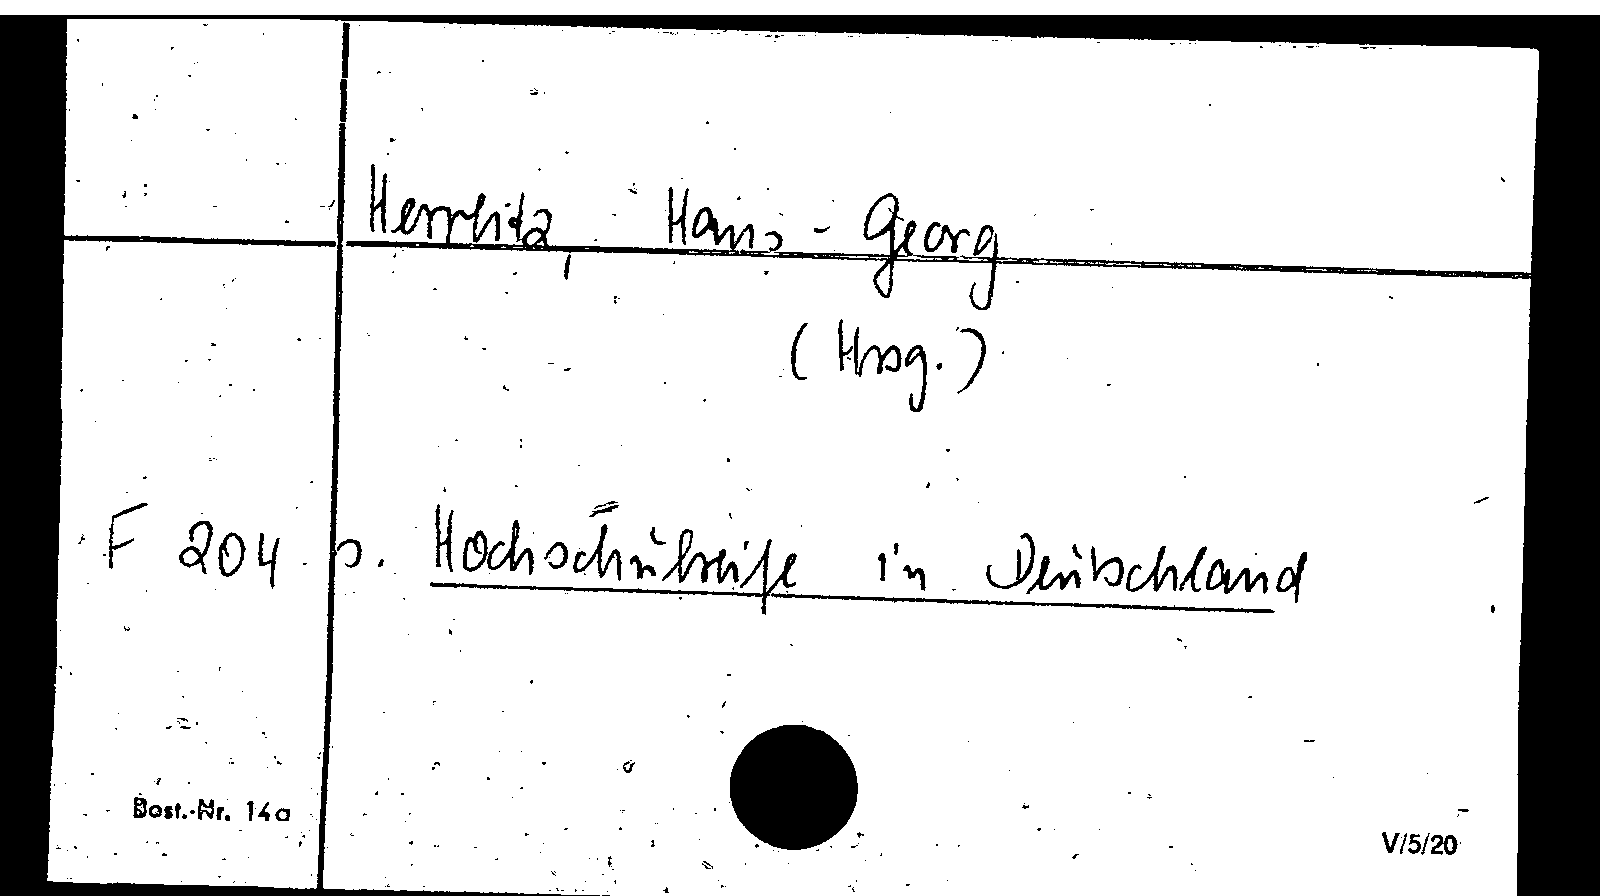 Herrlitz, Hans-Georg
(Hrsg.)
F 204 s. Hochschulreife in Deutschland
Best.-Nr. 14a
V/5/20